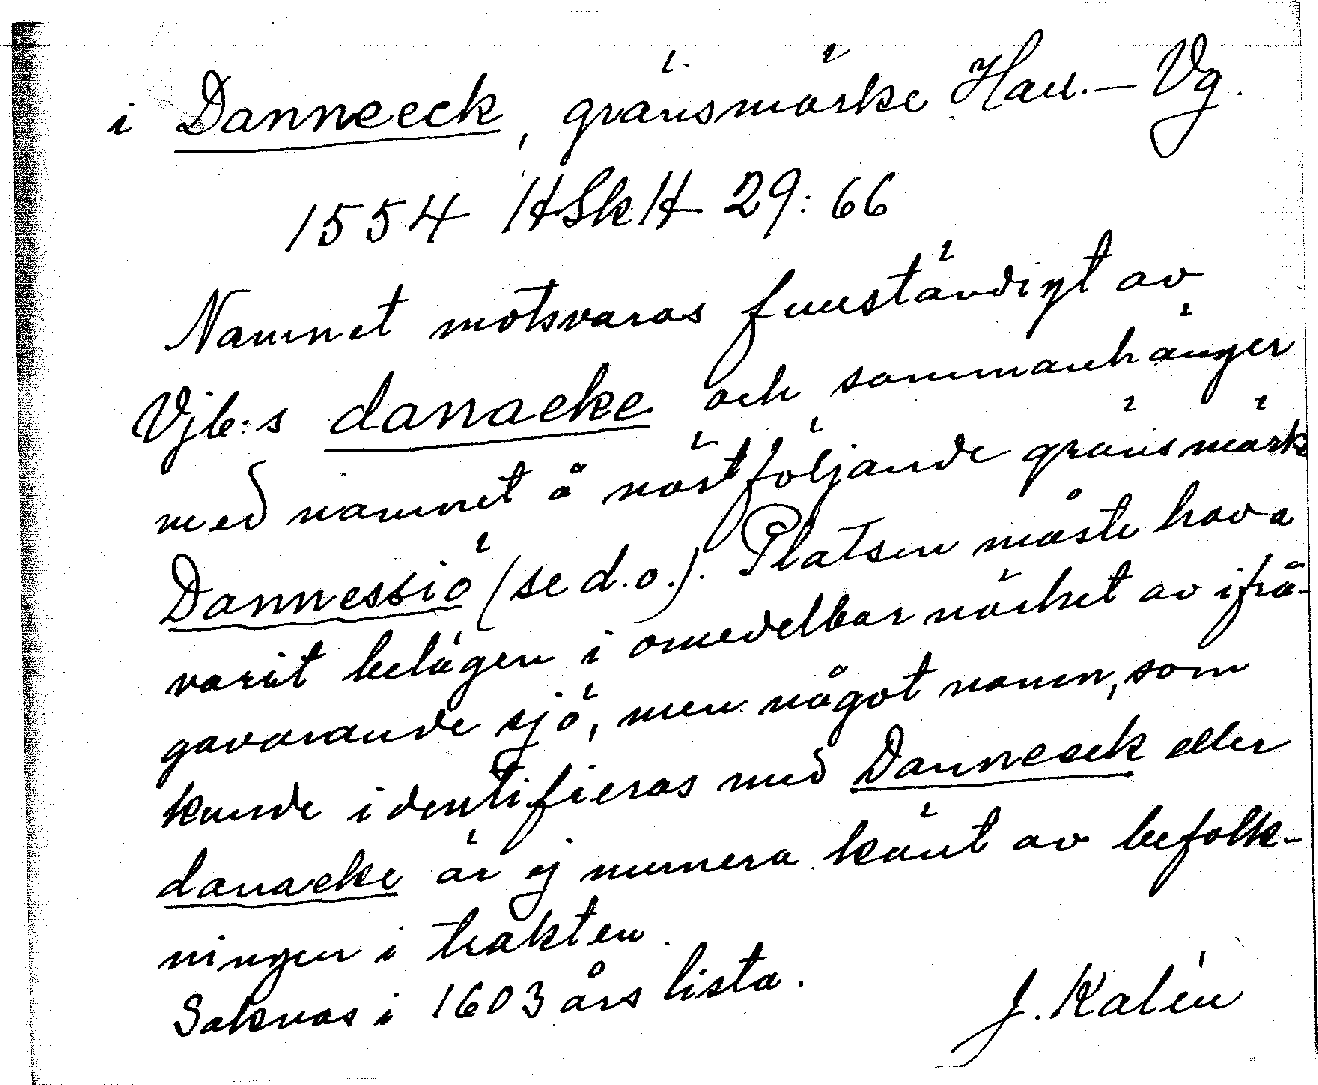 i Danneeck, gränsmärke Hall.– Vg.
1554 HSkH 29:66
Namnet motsvaras fullständigt av
Vjb:s danaeke och sammanhänger
med namnet å nästföljande gränsmärke
Dannessiö (se d.o.). Platsen måste hava
varit belägen i omedelbar närhet av ifrå-
gavarande sjö, men något namn, som
kunde identifieras med Danneeck eller
danaeke är ej numera känt av befolk-
ningen i trakten.
Saknas i 1603 års lista.
J. Kalén